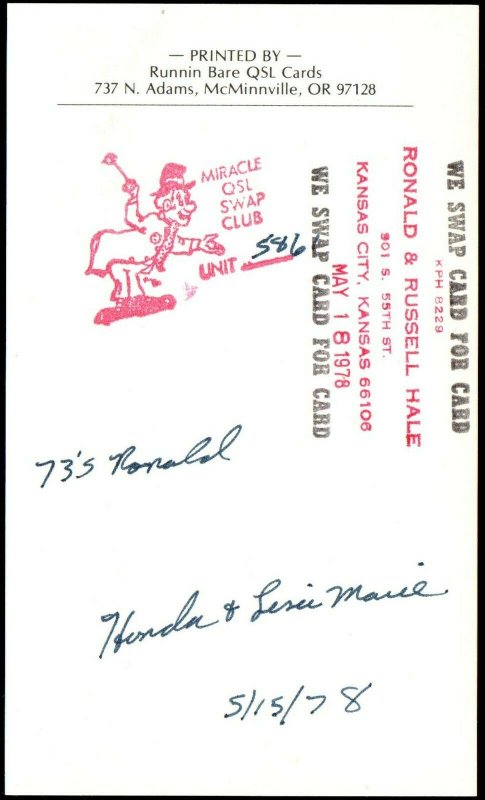 — PRINTED BY —
Runnin Bare QSL Cards
737 N. Adams, McMinnville, OR 97128
MIRACLE
QSL
SWAP
CLUB
UNIT 586
WE SWAP CARD FOR CARD
KPH 8229
RONALD & RUSSELL HALE
901 S. 55TH ST.
KANSAS CITY, KANSAS 66106
MAY 18 1978
WE SWAP CARD FOR CARD
73's Ronald
Honda & Lisa Marie
5/15/78